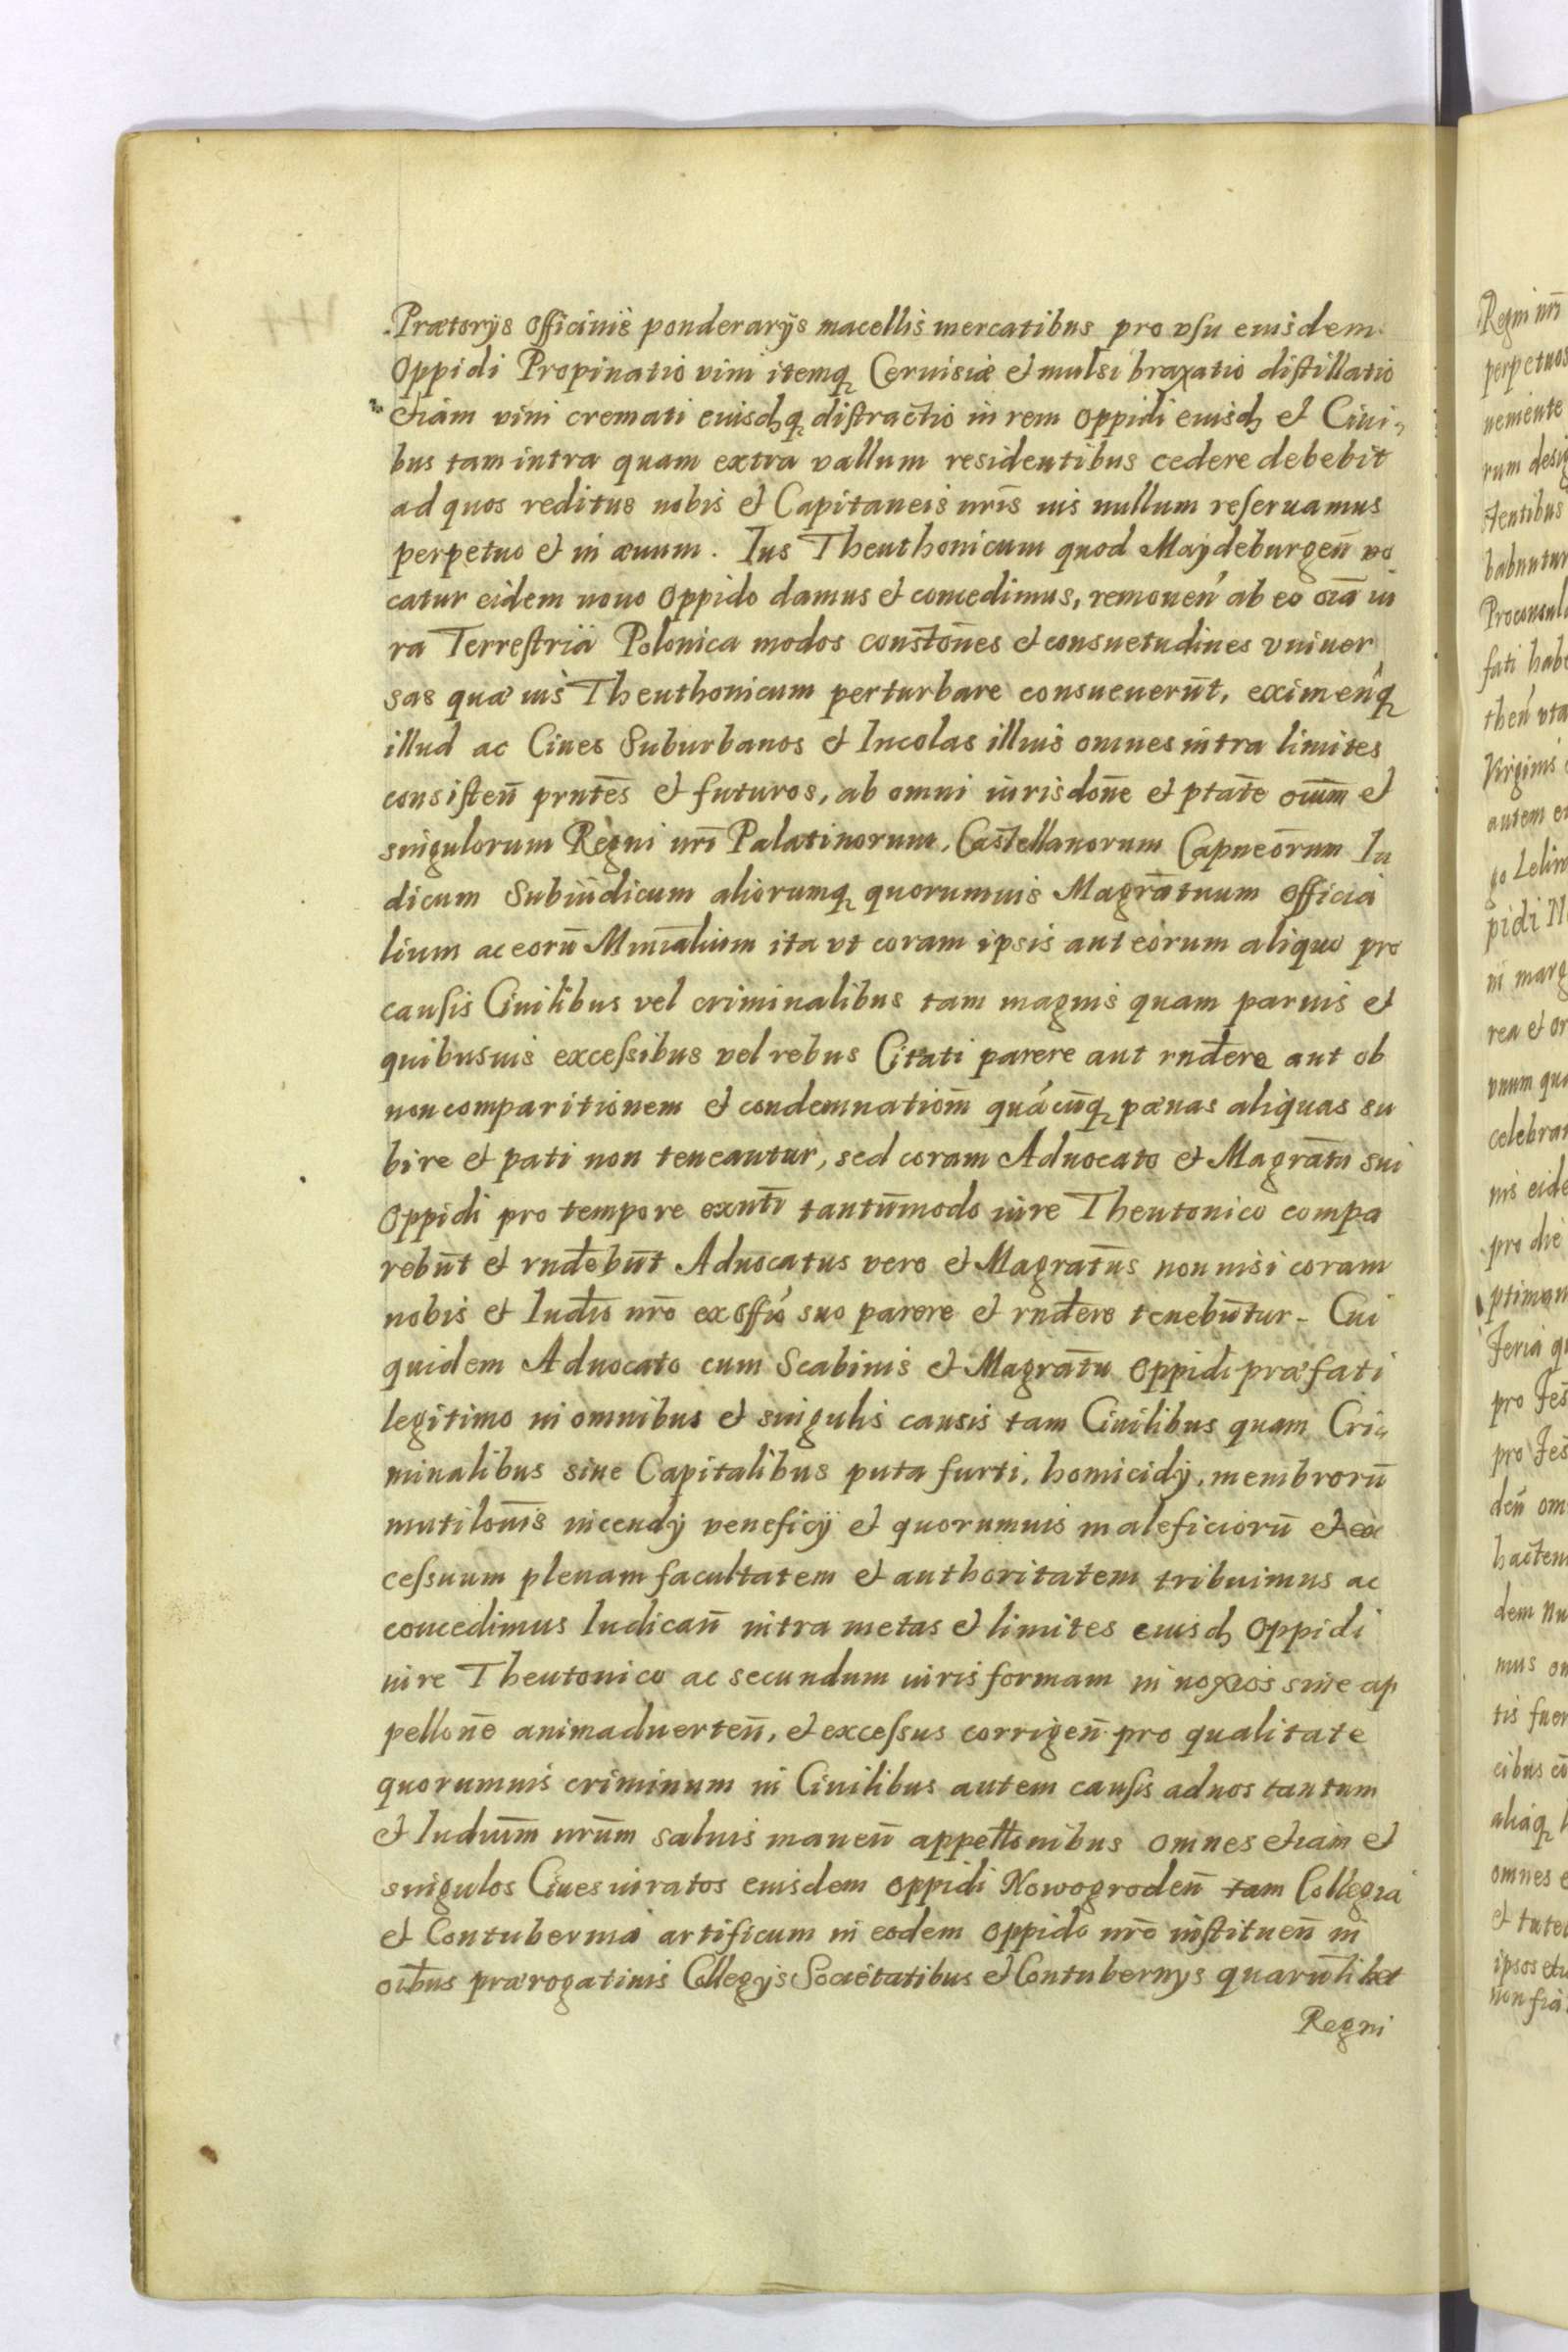 Prætorijs officinis ponderarijs macellis mercatibus pro vsu eiusdem
Oppidi Propinatio vini itemq₃ Ceruisiæ et mulsi braxatio distillatio
etiam vini cremati eiusdq₃ distractio in rem oppidi eiusd et Ciui-
bus tam intra quam extra vallum residentibus cedere debebit
ad quos reditus nobis et Capitaneis nrīs ius nullum reseruamus
perpetuo et in æuum. Ius Theuthonicum quod Maydeburgen̄ vo
catur eidem nouo oppido damus et concedimus, remouen̄ ab eo oīa iu
ra Terrestria Polonica modos constōnes et consuetudines vniuer
sas quæ ius Theuthonicum perturbare consueuerūt, eximen̄q₃
illud ac Ciues Suburbanos et Incolas illius omnes intra limites
consisten̄ prntēs et futuros, ab omni iurisdōne et ptatē oīum et
singulorum Regni nrī Palatinorum, Castellanorum Capneōrum Iu
dicum Subiudicum aliorumq₃ quorumuis Magrātuum officia
lium ac eorū Minīalium ita vt coram ipsis aut eorum aliquo pro
causis Ciuilibus vel criminalibus tam magnis quam paruis et
quibusuis excessibus vel rebus Citati parere aut rndēre aut ob
non comparitionem et condemnatiōm quācūq₃ pænas aliquas su
bire et pati non teneantur, sed coram Aduocato et Magrātu sui
Oppidi pro tempore exntī tantūmodo iure Theutonico compa
rebūt et rndēbūt Aduocatus vero et Magratūs non nisi coram
nobis et Iudīo nrō ex offīo suo parere et rndēre tenebūtur - Cui
quidem Aduocato cum Scabinis et Magratū Oppidi præfati
legitimo in omnibus et singulis causis tam Ciuilibus quam Cri-
minalibus siue Capitalibus puta furti, homicidij, membrorū
mutilōnis incendij veneficij et quorumuis maleficiorū et ex
cessuum plenam facultatem et authoritatem tribuimus ac
concedimus Iudican̄ intra metas et limites eiusd Oppidi
iure Theutonico ac secundum iuris formam in noxios sine ap
pellonē animaduerten̄, et excessus corrigen̄ pro qualitate
quorumuis criminum in Ciuilibus autem causis ad nos tantum
et Iudiūm nrūm saluis manen̄ appellonibus omnes etiam et
singulos Ciues iuratos eiusdem oppidi Nowogroden̄ tam Collegia
et Contubernia artificum in eodem oppido nrō instituen̄ in
oībus prærogatiuis Collegijs Societatibus et Contubernys quarūlibet
Regni
Regni nrī
perpetuos
rum desig
babuntur
Proconsul
fati hab
then̄ vta
Virginis
autem e
go Lelin
pidi N
in marg
rea et or
vnum qu
celebra
nis eide
pro die
Feria q
pro Fes
pro Fes
den̄ om
hacten
mus o
tis fuer
cibus
aliaq₃
omnes
ipsos